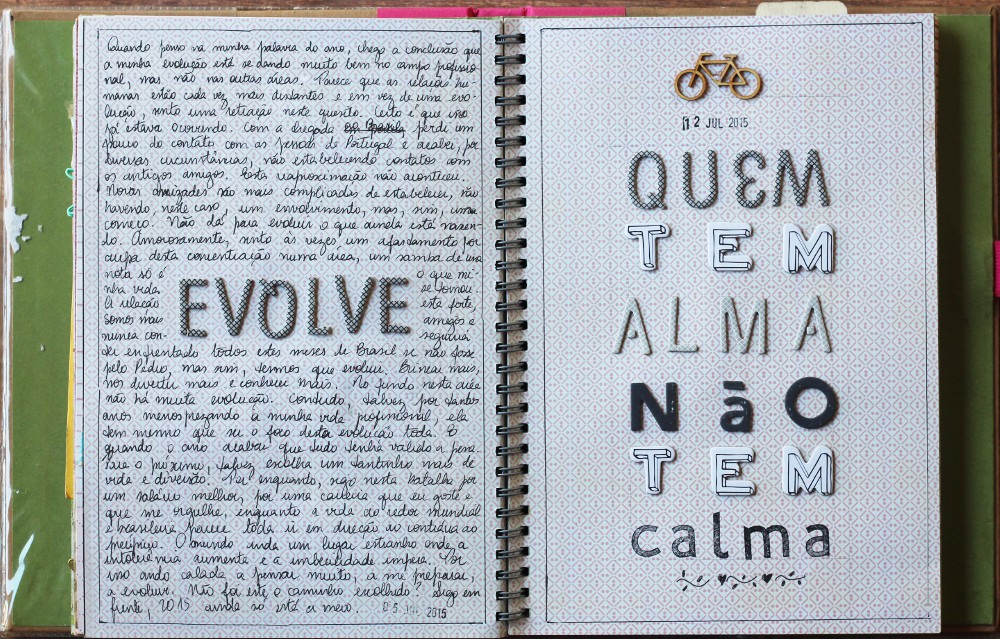 Quando penso na minha palavra do ano, chego a conclusão que
a minha evolução está se dando muito bem no campo profissio-
nal, mas não nas outras áreas. Parece que as relações hu-
manas estão cada vez mais distantes e em vez de uma evo-
lução, sinto uma retração neste quesito. Certo é que isso
já estava ocorrendo. Com a chegada perdi um
pouco do contato com as pessoas de Portugal e acabei, por
diversas circunstâncias, não estabelecendo contatos com
os antigos amigos. Esta reaproximação não aconteceu.
Novas amizades são mais complicadas de estabelecer, não
havendo, neste caso, um envolvimento, mas, sim, um
começo. Não dá para evoluir o que ainda está nascen-
do. Amorosamente, sinto às vezes um afastamento por
culpa desta concentração numa área, um samba de uma
nota só é o que mi-
nha vida se tornou.
A relação está forte,
somos mais amigos e
nunca con- seguiria
ter enfrentado todos estes meses de Brasil se não fosse
pelo Pedro, mas sim, temos que evoluir. Brincar mais,
nos divertir mais e conhecer mais. No fundo nesta área
não há muita evolução. Contudo, talvez por tantos
anos menosprezando a minha vida profissional, ela
tem mesmo que ser o foco desta evolução toda. E
quando o ano acabar que tudo tenha valido a pena.
Para o próximo, talvez escolha um tantinho mais de
vida e diversão. Por enquanto, sigo nesta batalha por
um salário melhor, por uma carreira que eu goste e
que me orgulhe, enquanto a vida ao redor mundial
e brasileira parece toda ir em direção ao contrário ao
precipício. O mundo anda um lugar estranho onde a
intolerância aumenta e a imbecilidade impera. Por
isso ando calada a pensar muito, a me preparar,
a evoluir. Não foi este o caminho escolhido? Sigo em
frente, 2015 ainda só está a meio. 05 JUL 2015
EVOLVE
12 JUL 2015
QUEM
TEM
ALMA
Não
TEM
calma